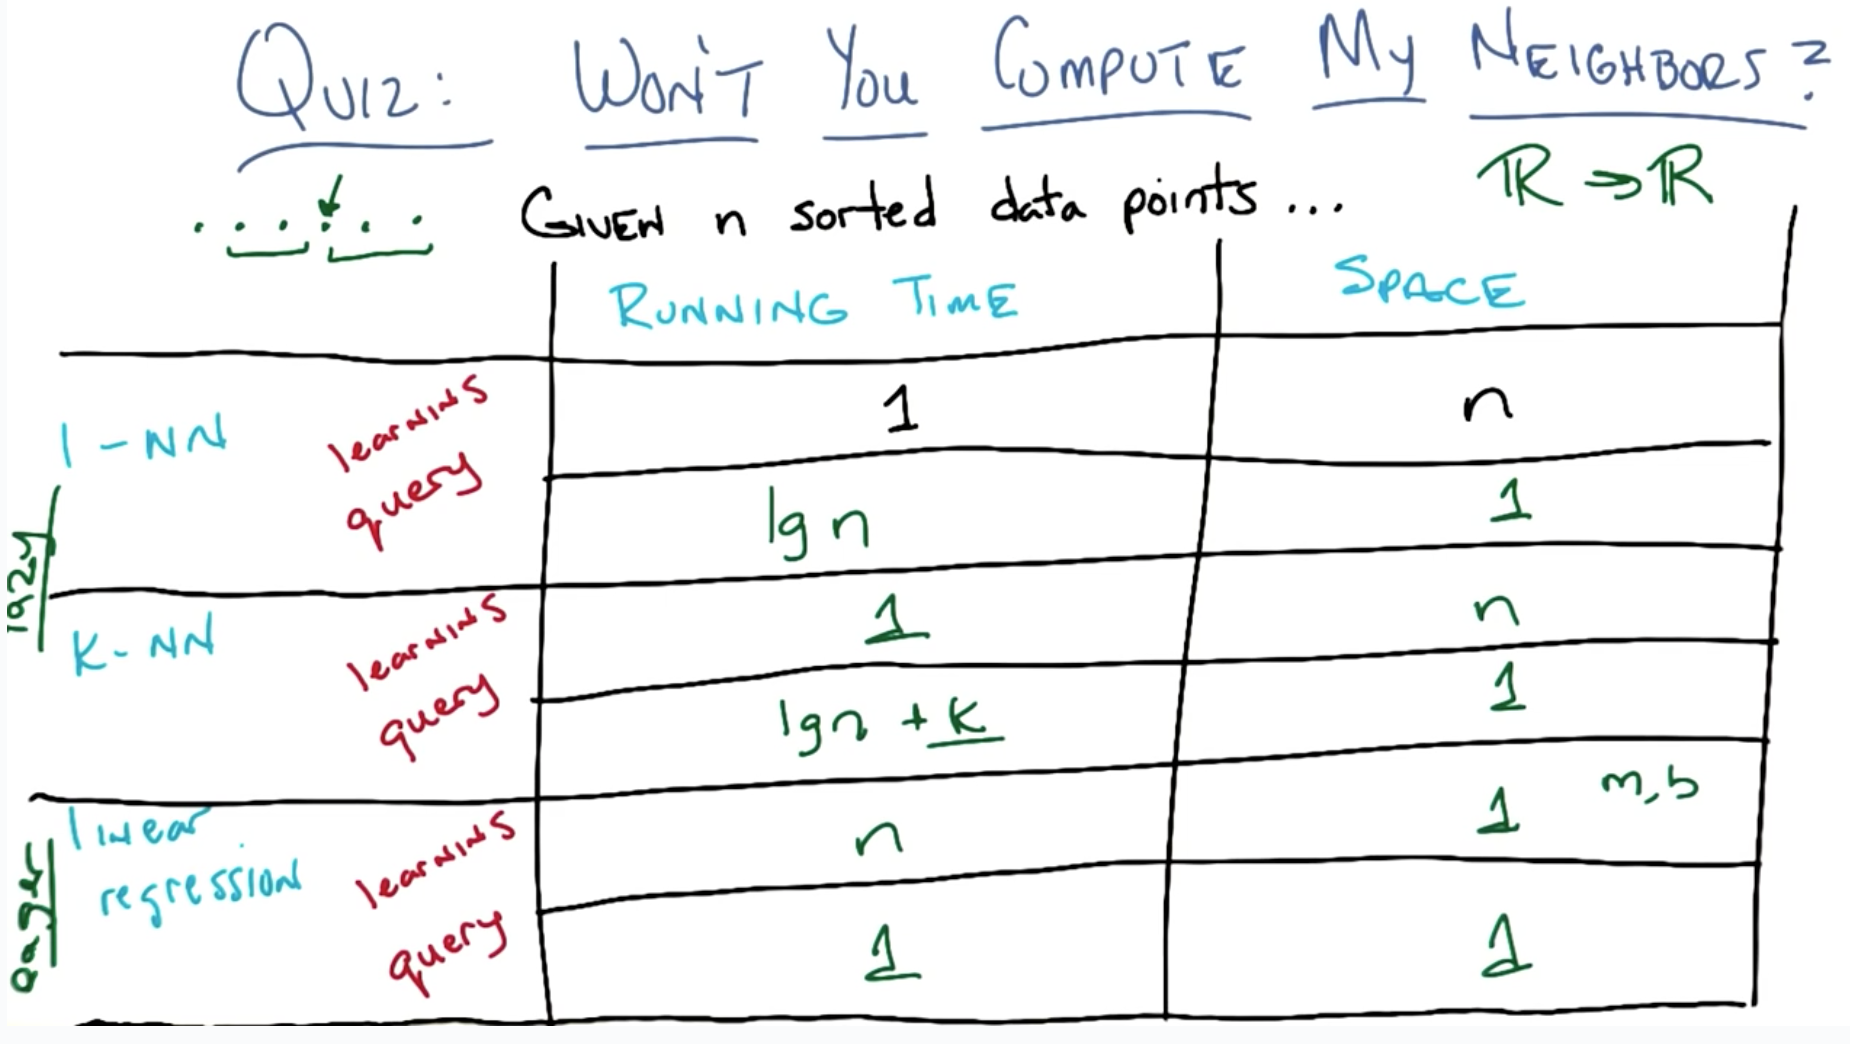 QUIZ: WON'T YOU COMPUTE MY NEIGHBORS?
ℝ → ℝ
GIVEN n sorted data points...
RUNNING TIME SPACE
1-NN learning 1 n
query lg n 1
lazy
K-NN learning 1 n
query lg n + k 1
linear regression learning n 1 m, b
eager
query 1 1